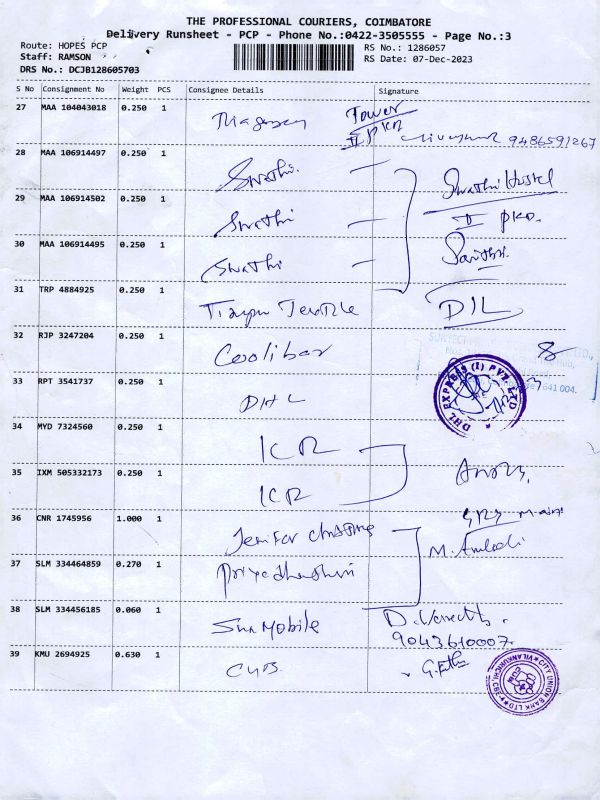 THE PROFESSIONAL COURIERS, COIMBATORE
Delivery Runsheet - PCP - Phone No.:0422-3505555 - Page No.:3
Route: HOPES PCP
RS No.: 1286057
Staff: RAMSON
RS Date: 07-Dec-2023
DRS No.: DCJB128605703
S No Consignment No Weight PCS Consignee Details Signature
27 MAA 104043018 0.250 1 Tower 9486591267
28 MAA 106914497 0.250 1 Swathi. Swathi Hostel
29 MAA 106914502 0.250 1 Swathi II
30 MAA 106914495 0.250 1 Swathi
31 TRP 4884925 0.250 1 Textile DIL
32 RJP 3247204 0.250 1 Coolibar
641 004.
33 RPT 3541737 0.250 1 DHL DHL EXPRESS (I) PVT. LTD
34 MYD 7324560 0.250 1 ICR
35 IXM 505332173 0.250 1 ICR
36 CNR 1745956 1.000 1 Jenifer
37 SLM 334464859 0.270 1 Priyadharshini
38 SLM 334456185 0.060 1 Sun Mobile D.
9043610007.
39 KMU 2694925 0.630 1 CUB
CITY UNION BANK LTD